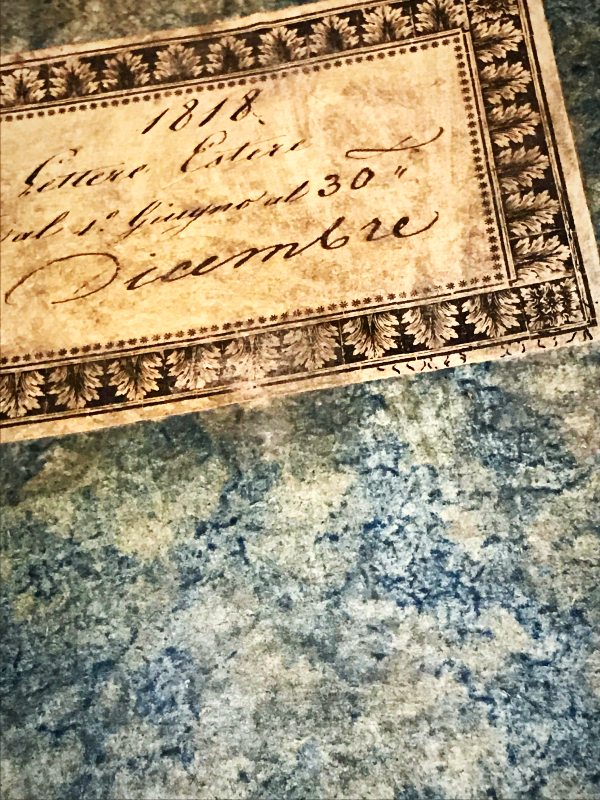 1818.
Lettere Estere
dal 1º Giugno al 30 "
Dicembre